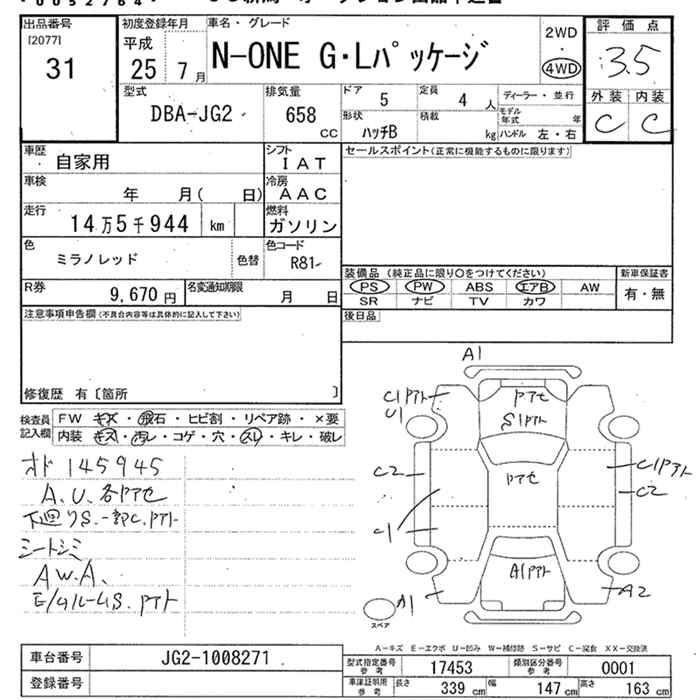 出品番号
[2077]
31
初度登録年月
平成
25 7 月
車名・グレード
N-ONE G・Lパッケージ
2WD
・
4WD
評価点
3.5
外装 内装
C C
型式
DBA-JG2
排気量
658
CC
ドア 5
定員 4 人
ディーラー・並行
形状
ハッチB
積載 kg
モデル年式 年
ハンドル 左・右
車歴
自家用
シフト
IAT
セールスポイント(正常に機能するものに限ります)
車検
年 月( 日)
冷房
AAC
走行
14万5千944 km
燃料
ガソリン
色
ミラノレッド
色替
色コード
R81
装備品(純正品に限り○をつけてください)
新車保証書
PS PW ABS エアB AW
有・無
SR ナビ TV カワ
R券
9,670 円
名変通知期限
月 日
後日品
注意事項申告欄(不具合内容等は具体的に記入して下さい)
修復歴 有〔箇所 〕
検査員記入欄
FW キズ・飛石・ヒビ割・リペア跡・×要
内装 キズ・汚レ・コゲ・穴・スレ・キレ・破レ
オド 145945
A.U.各アセ
下廻りS.一部C.アト
シートシミ
AW.A.
A1
C1アト
U1
アセ
S1アト
C2
アセ
C1アト
C2
C1
A1アト
A1
A2
スペア
A-キズ E-エクボ U-凹み W-補修跡 S-サビ C-腐食 XX-交換済
車台番号
JG2-1008271
登録番号
型式指定番号
参考
17453
類別区分番号
参考
0001
車庫証明用
参考
長さ 339 cm
幅 147 cm
高さ 163 cm